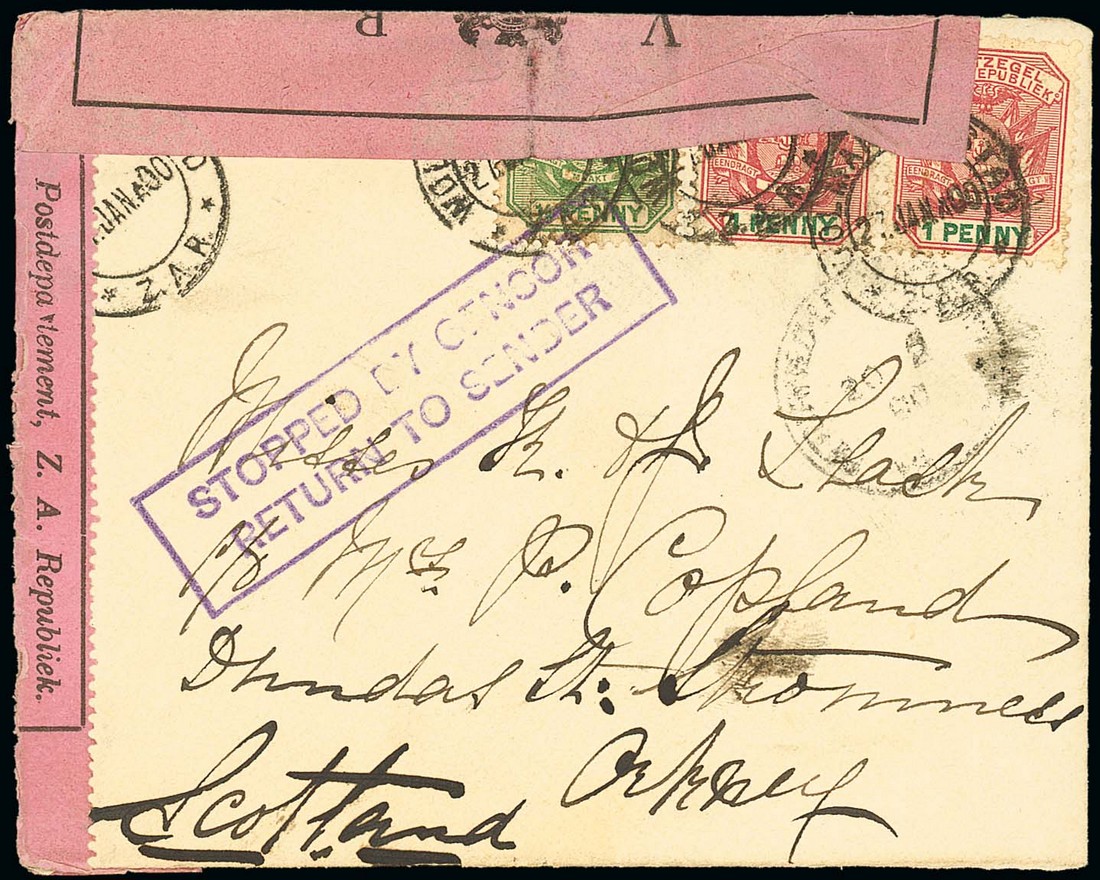 V R
TZEGEL
REPUBLIEK
EENDRAGT
EENDRAGT
½ PENNY
1 PENNY
1 PENNY
JAN 00
Z.A.R.
27 JAN 00
Postdepartement, Z. A. Republiek.
STOPPED BY CENSOR
RETURN TO SENDER
Misses
c/o Mrs. P. Copland
Dundas St. Stromness
Orkney
Scotland